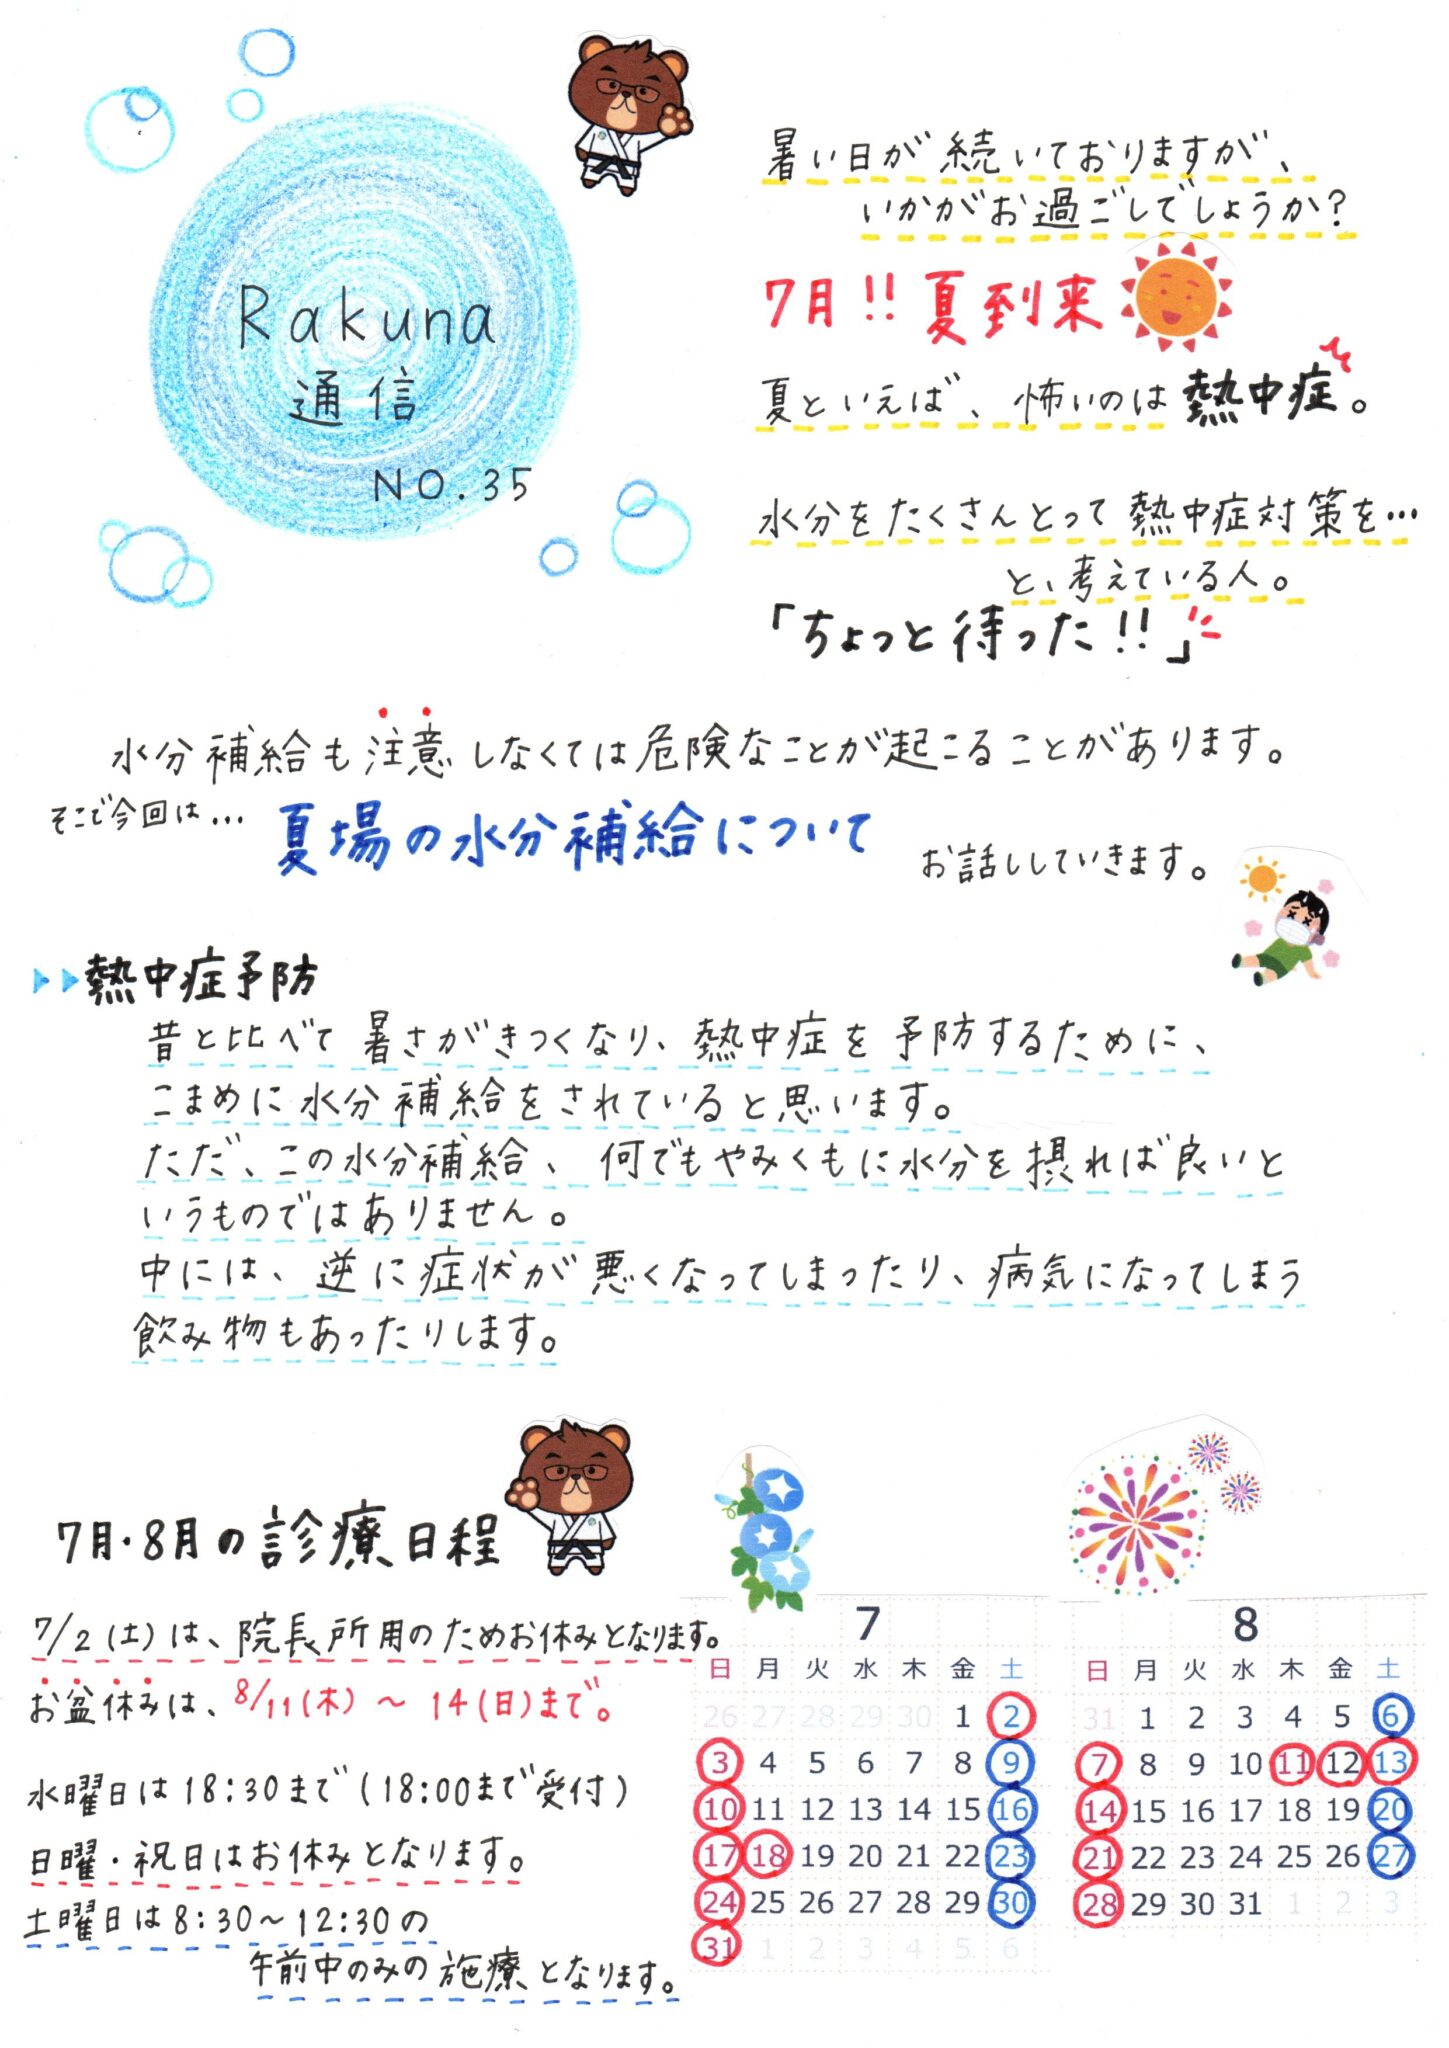 Rakuna
通信
NO.35
暑い日が続いておりますが、
いかがお過ごしでしょうか?
7月!!夏到来
夏といえば、怖いのは熱中症。
水分をたくさんとって熱中症対策を…
と、考えている人。
「ちょっと待った!!」
水分補給も注意しなくては危険なことが起こることがあります。
そこで今回は…夏場の水分補給についてお話ししていきます。
熱中症予防
昔と比べて暑さがきつくなり、熱中症を予防するために、
こまめに水分補給をされていると思います。
ただ、この水分補給、何でもやみくもに水分を摂れば良いと
いうものではありません。
中には、逆に症状が悪くなってしまったり、病気になってしまう
飲み物もあったりします。
7月・8月の診療日程
7/2(土)は、院長所用のためお休みとなります。
お盆休みは、8/11(木)～14(日)まで。
水曜日は18:30まで(18:00まで受付)
日曜・祝日はお休みとなります。
土曜日は8:30～12:30の
午前中のみの施療となります。
7
日 月 火 水 木 金 土
26 27 28 29 30 1 2
3 4 5 6 7 8 9
10 11 12 13 14 15 16
17 18 19 20 21 22 23
24 25 26 27 28 29 30
31 1 2 3 4 5 6
8
日 月 火 水 木 金 土
31 1 2 3 4 5 6
7 8 9 10 11 12 13
14 15 16 17 18 19 20
21 22 23 24 25 26 27
28 29 30 31 1 2 3